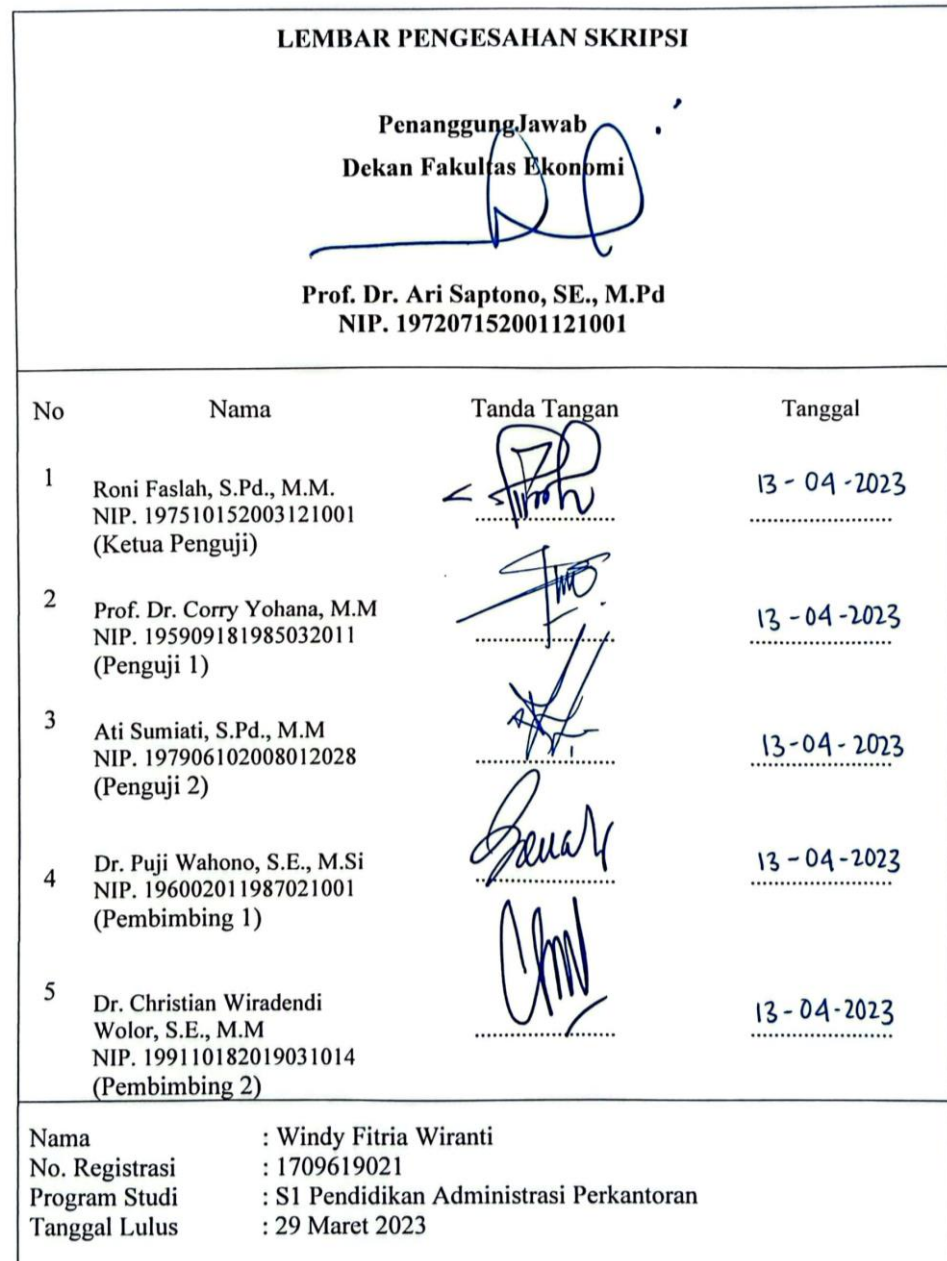 LEMBAR PENGESAHAN SKRIPSI
PenanggungJawab
Dekan Fakultas Ekonomi
Prof. Dr. Ari Saptono, SE., M.Pd
NIP. 197207152001121001
No Nama Tanda Tangan Tanggal
1 Roni Faslah, S.Pd., M.M. 13-04-2023
NIP. 197510152003121001
(Ketua Penguji)
2 Prof. Dr. Corry Yohana, M.M 13-04-2023
NIP. 195909181985032011
(Penguji 1)
3 Ati Sumiati, S.Pd., M.M 13-04-2023
NIP. 197906102008012028
(Penguji 2)
4 Dr. Puji Wahono, S.E., M.Si 13-04-2023
NIP. 196002011987021001
(Pembimbing 1)
5 Dr. Christian Wiradendi
Wolor, S.E., M.M 13-04-2023
NIP. 199110182019031014
(Pembimbing 2)
Nama : Windy Fitria Wiranti
No. Registrasi : 1709619021
Program Studi : S1 Pendidikan Administrasi Perkantoran
Tanggal Lulus : 29 Maret 2023